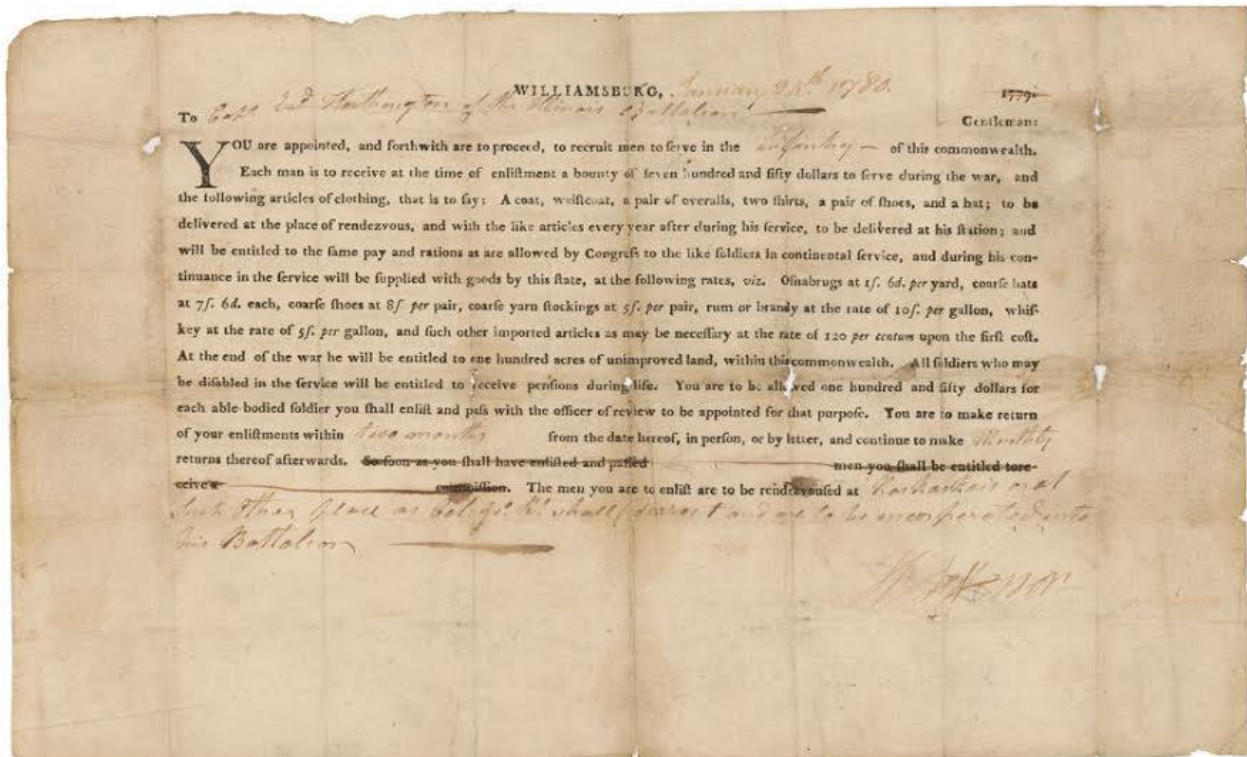 WILLIAMSBURG, January 1780. 1779.
To Capt of the Illinois Battalion
Gentleman:
YOU are appointed, and forthwith are to proceed, to recruit men to ſerve in the infantry — of this commonwealth.
Each man is to receive at the time of enliſtment a bounty of ſeven hundred and fifty dollars to ſerve during the war, and
the following articles of clothing, that is to ſay: A coat, waiſtcoat, a pair of overalls, two ſhirts, a pair of ſhoes, and a hat; to be
delivered at the place of rendezvous, and with the like articles every year after during his ſervice, to be delivered at his ſtation; and
will be entitled to the ſame pay and rations as are allowed by Congreſs to the like ſoldiers in continental ſervice, and during his con-
tinuance in the ſervice will be ſupplied with goods by this ſtate, at the following rates, viz. Oſnabrugs at 1ſ. 6d. per yard, coarſe hats
at 7ſ. 6d. each, coarſe ſhoes at 8ſ per pair, coarſe yarn ſtockings at 5ſ. per pair, rum or brandy at the rate of 10ſ. per gallon, whiſ-
key at the rate of 5ſ. per gallon, and ſuch other imported articles as may be neceſſary at the rate of 120 per centum upon the firſt coſt.
At the end of the war he will be entitled to one hundred acres of unimproved land, within this commonwealth. All ſoldiers who may
be diſabled in the ſervice will be entitled to receive penſions during life. You are to be allowed one hundred and fifty dollars for
each able-bodied ſoldier you ſhall enliſt and paſs with the officer of review to be appointed for that purpoſe. You are to make return
of your enliſtments within two months from the date hereof, in perſon, or by letter, and continue to make Monthly
returns thereof afterwards. So ſoon as you ſhall have enliſted and paſſed men you ſhall be entitled to re-
ceive a commiſſion. The men you are to enliſt are to be rendezvouſed at or at
Such Other place as shall direct and are to be incorporated into
his Battalion